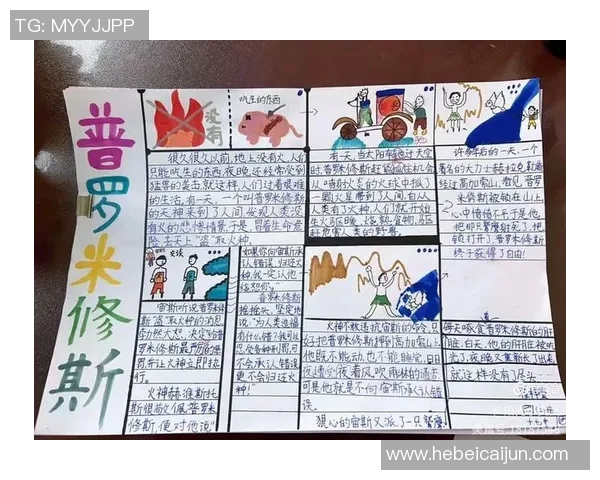 TG: MYYJJPP
普罗米修斯
没有
吃生的东西
很久很久以前,地上没有火,人们
只能吃生的东西,夜晚还经常受到
猛兽的袭击,就这样,人们过着艰难
的生活。有一天,一个叫普罗米修斯
的天神来到了人间,发现人类没
有火的悲惨情景,于是,冒着生命危
险,去天上"盗"取火种。
有一天,当太阳车驰过天空
时,普罗米修斯
从
一颗火星,带到了人间。自从
人类有了火种,人们就开始
生火取暖、烧熟食物、驱
赶危害人类的野兽。
许多年后的一天,一个
著名的大力士赫拉克勒斯
经过高加索山,看见普罗
米修斯被锁在山上,
心中愤愤不平,于是他
他即只鹫鹰射死了,把
锁打开了,普罗米修斯
终于获得了自由!
交谈
宙斯听说普罗米修
斯"盗"取火种的消息,
勃然大怒,决定给普
罗米修斯最严厉的惩
罚,并让火神立即执
行。
火神赫淮斯托
斯很敬佩普罗米
修斯,便对他说:"
如果你向宙斯承
认错误,归还火
种,我一定让他
饶恕你。"
普罗米修斯
摇摇头,坚定地
说:"为人类造福,
有什么错?我可以
忍受各种刑罚,可
不会承认错误,
更不会归还火
种!"
火神不敢违抗宙斯的命令,只
好把普罗米修斯押到高加索山上,
他既不能动,也不能睡觉,日日
夜夜遭受着风吹雨淋的痛苦,
可是他就是不向宙斯承认错
误。
狠心的宙斯又派了一只鹫鹰
每天啄食普罗米修斯的肝
脏,白天,他的肝脏被吃
光,夜晚又重新长了出来,
就这样没有了尽头……
www.hebeicaijun.com